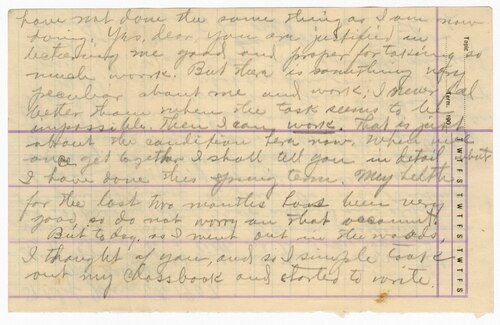 have not done the same thing as I am now
doing. Yes, dear, you are justified in
lecturing me good and proper for taking so
much worrk. But there is something very
peculiar about me and work, I never feel
better than when the task seems to be
impossible. Then I can work. That is just
about the condition here now. When we
once get together I shall tell you in detail what
I have done this spring team. My helth
for the last two months has been very
good, so do not worry on that account.
But to day, as I went out in the woods,
I thought of you, and so I simple took
out my classbook and started to write.
Topic
Term, 190
T W T F S T W T F S T W T F S